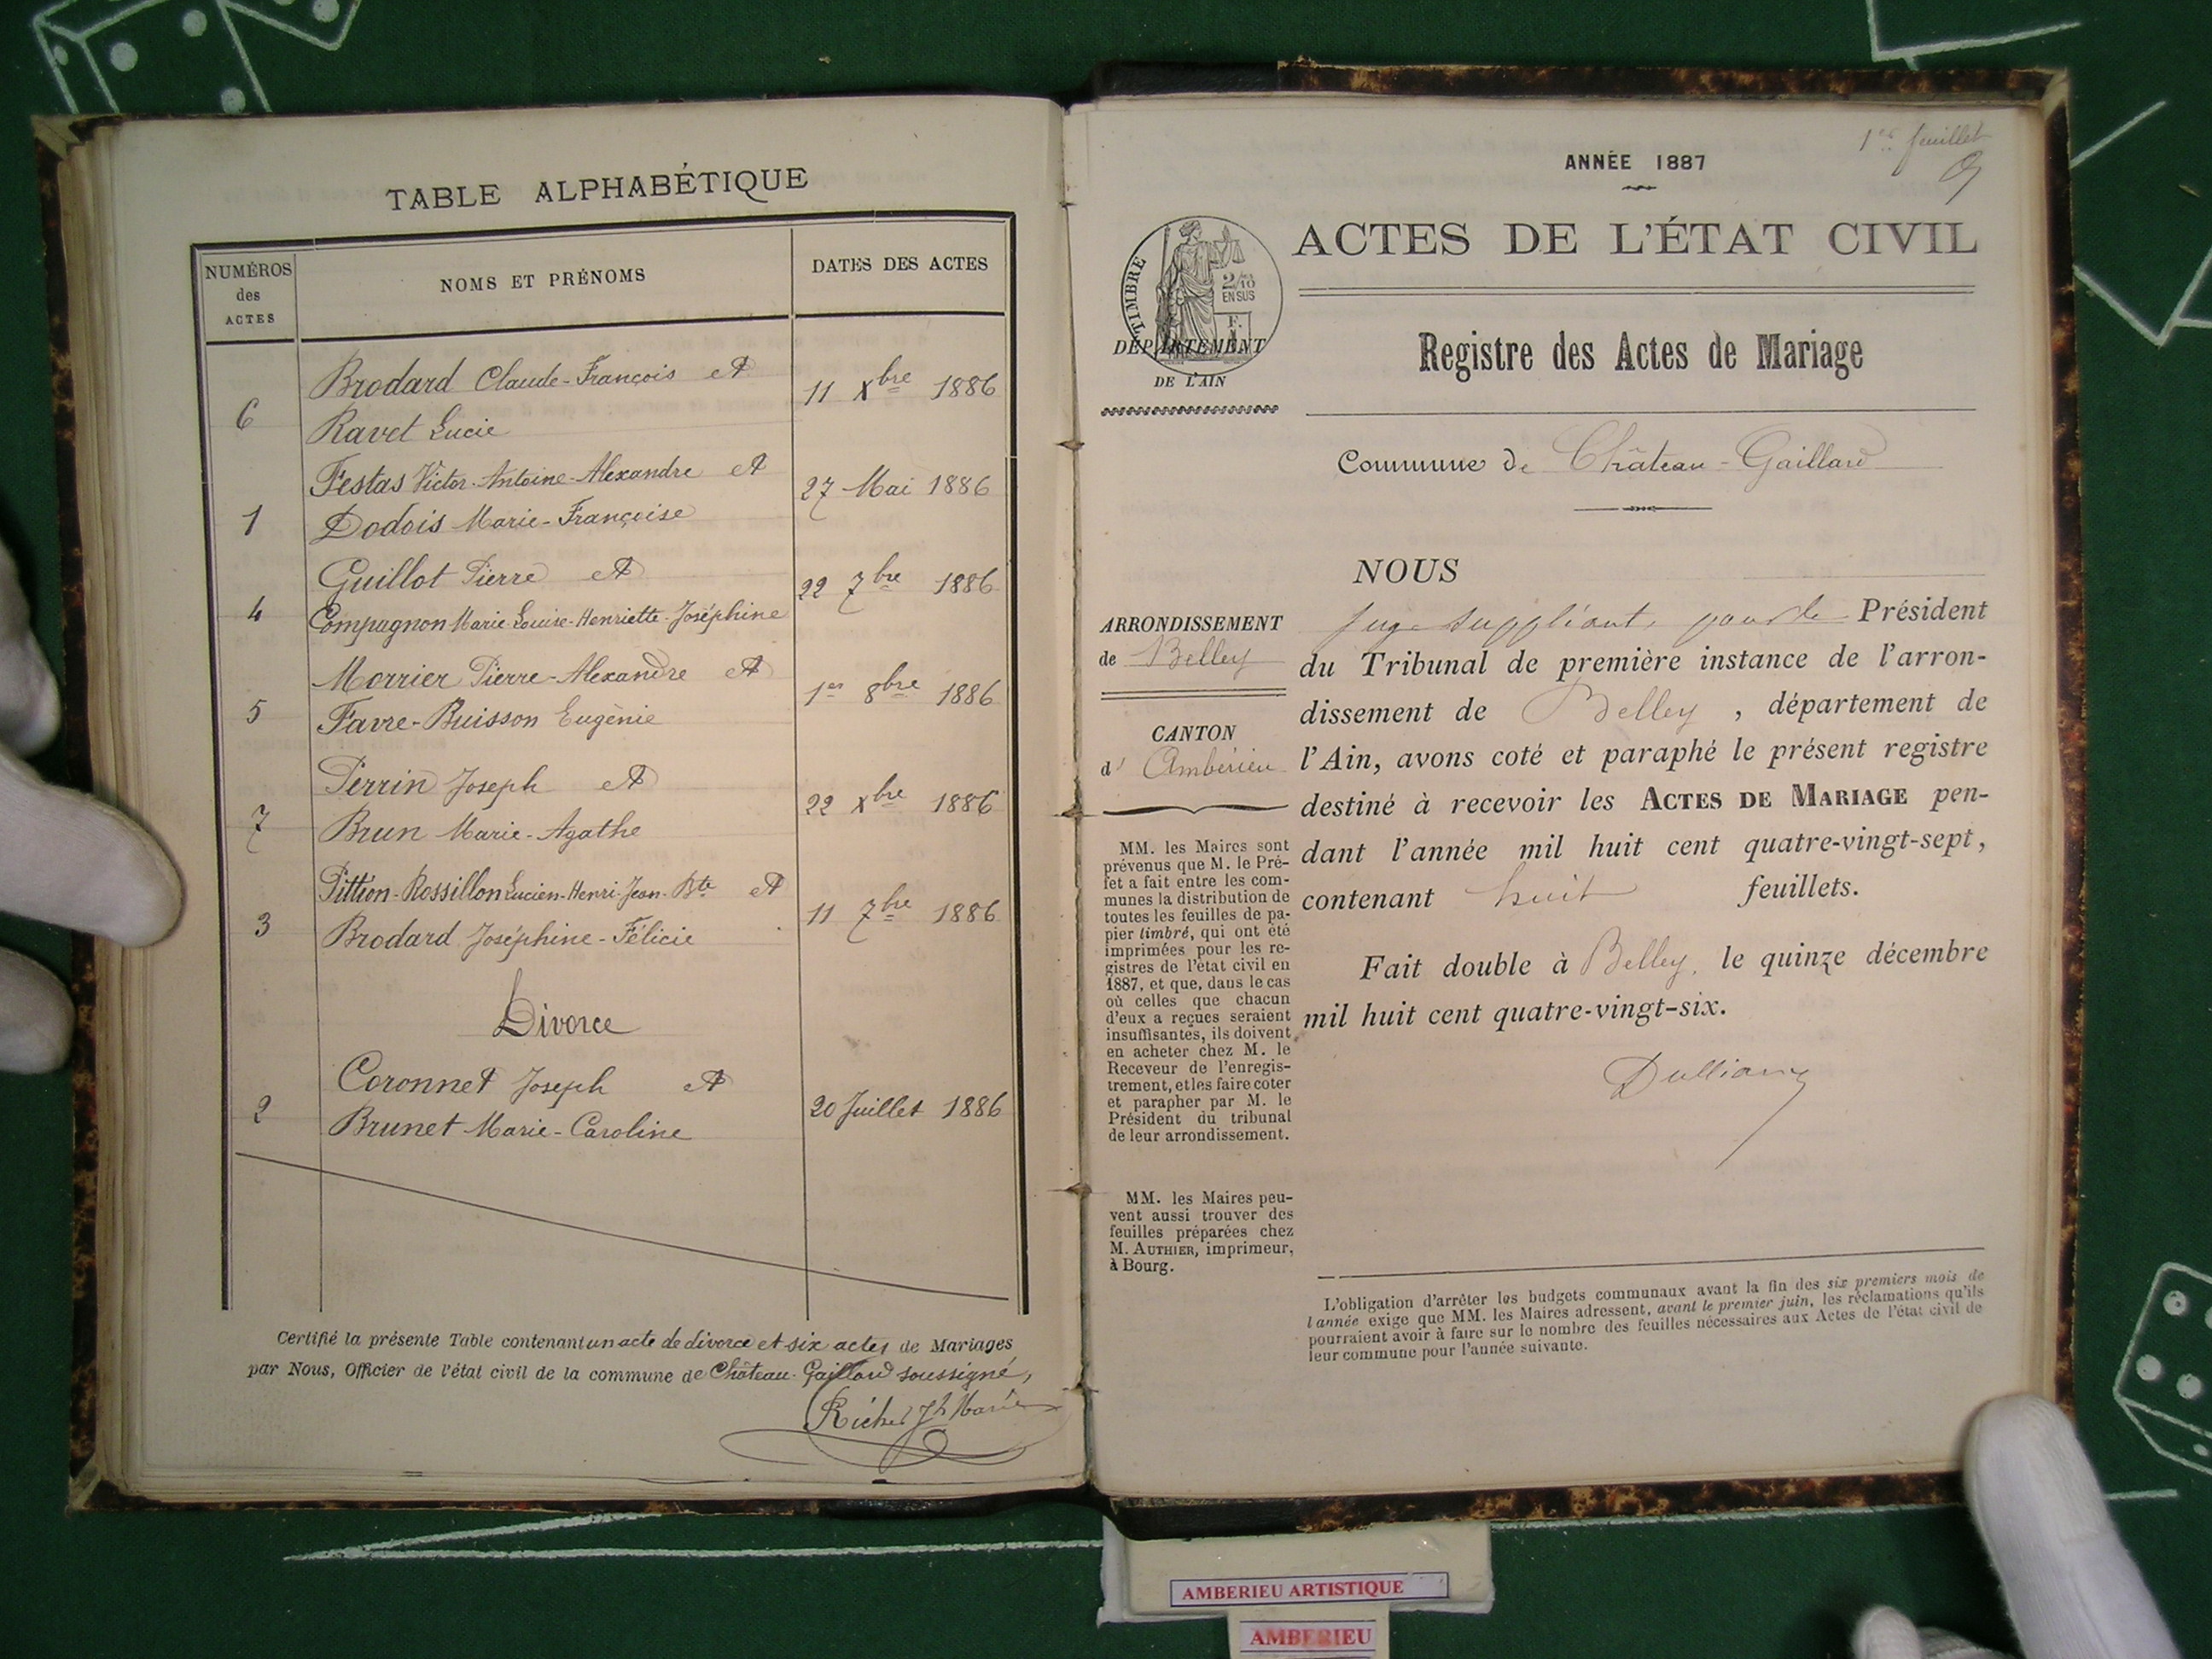 TABLE ALPHABÉTIQUE
NUMÉROS
des
ACTES
NOMS ET PRÉNOMS
DATES DES ACTES
Brodard Claude-François et
6 Ravet Lucie 11 Xbre 1886
Festas Victor-Antoine-Alexandre et
1 Dodois Marie-Françoise 27 Mai 1886
Guillot Pierre et
4 Compagnon Marie-Louise-Henriette-Joséphine 22 7bre 1886
Morrier Pierre-Alexandre et
5 Favre-Buisson Eugènie 1er 8bre 1886
Perrin Joseph et
7 Brun Marie-Agathe 22 Xbre 1886
Pittion-Rossillon Lucien-Henri-Jean-Bte et
3 Brodard Joséphine-Félicie 11 7bre 1886
Divorce
Coronnet Joseph et
2 Brunet Marie-Caroline 20 Juillet 1886
Certifié la présente Table contenant un acte de divorce et six actes de Mariages
par Nous, Officier de l'état civil de la commune de Château-Gaillard soussigné,
1er feuillet
ANNÉE 1887
ACTES DE L'ÉTAT CIVIL
TIMBRE
2/10
EN SUS
DÉPARTEMENT
DE L'AIN
Registre des Actes de Mariage
Commune de Château-Gaillard
ARRONDISSEMENT
de Belley
CANTON
d' Ambérieu
MM. les Maires sont
prévenus que M. le Pré-
fet a fait entre les com-
munes la distribution de
toutes les feuilles de pa-
pier timbré, qui ont été
imprimées pour les re-
gistres de l'état civil en
1887, et que, dans le cas
où celles que chacun
d'eux a reçues seraient
insuffisantes, ils doivent
en acheter chez M. le
Receveur de l'enregis-
trement, et les faire coter
et parapher par M. le
Président du tribunal
de leur arrondissement.
MM. les Maires peu-
vent aussi trouver des
feuilles préparées chez
M. AUTHIER, imprimeur,
à Bourg.
NOUS
Juge suppléant, pour le Président
du Tribunal de première instance de l'arron-
dissement de Belley, département de
l'Ain, avons coté et paraphé le présent registre
destiné à recevoir les ACTES DE MARIAGE pen-
dant l'année mil huit cent quatre-vingt-sept,
contenant huit feuillets.
Fait double à Belley, le quinze décembre
mil huit cent quatre-vingt-six.
L'obligation d'arrêter les budgets communaux avant la fin des six premiers mois de
l'année exige que MM. les Maires adressent, avant le premier juin, les réclamations qu'ils
pourraient avoir à faire sur le nombre des feuilles nécessaires aux Actes de l'état civil de
leur commune pour l'année suivante.
AMBERIEU ARTISTIQUE
AMBERIEU